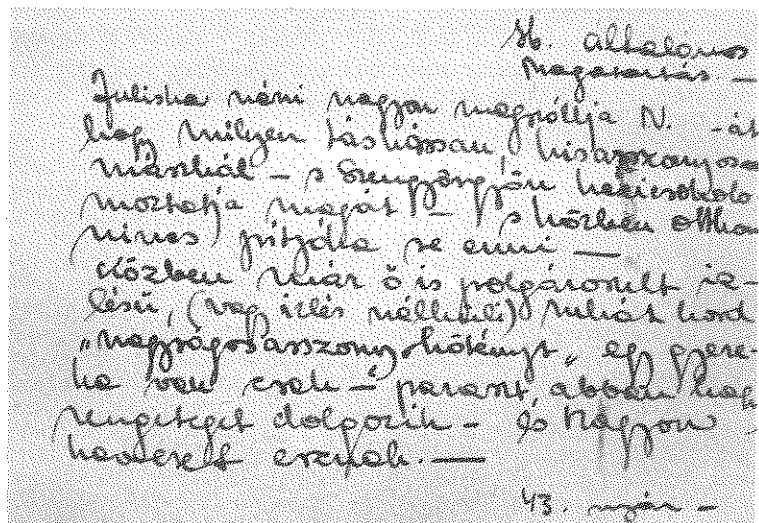 általános
Magatartás. —
Juliska néni nagyon megszólja N. -át
hogy milyen kisasszonyosan
mászkál — s Szengyörgyön kézicsókolo
magát — s közben otthon
nincs pitjóka se enni —
Közben már ő is polgárosult íz-
lésű, (vagy ízlés nélküli) ruhát hord
„nagyságosasszony-kötényt„ egy gyere-
ke van csak — paraszt, abban hogy
rengeteget dolgozik — és nagyon
keveset esznek. —
43. nyár —